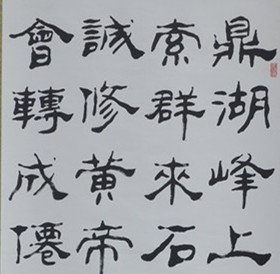 鼎湖峰上
索群來石
誠修黄帝
會轉成僊